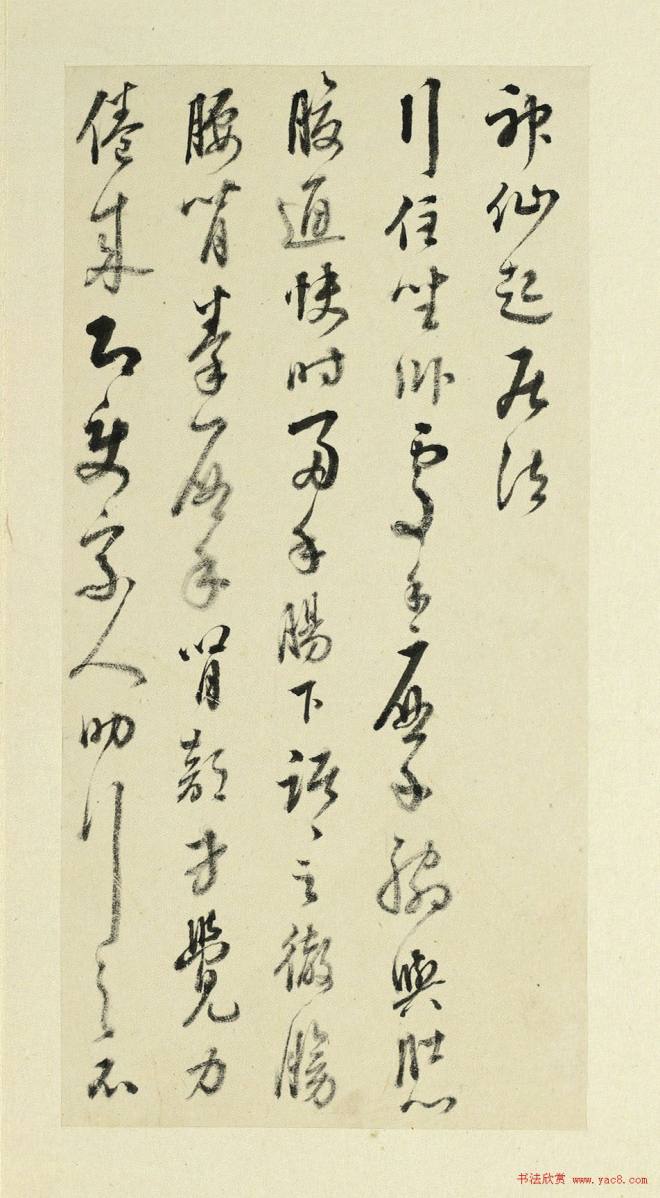 神仙起居法
行住坐卧處手摩脇與肚心
腹通快時兩手腸下踞〻之徹膀
腰背拳摩腎部才覺力
倦來即使家人助行之不
书法欣赏 www.yac8.com